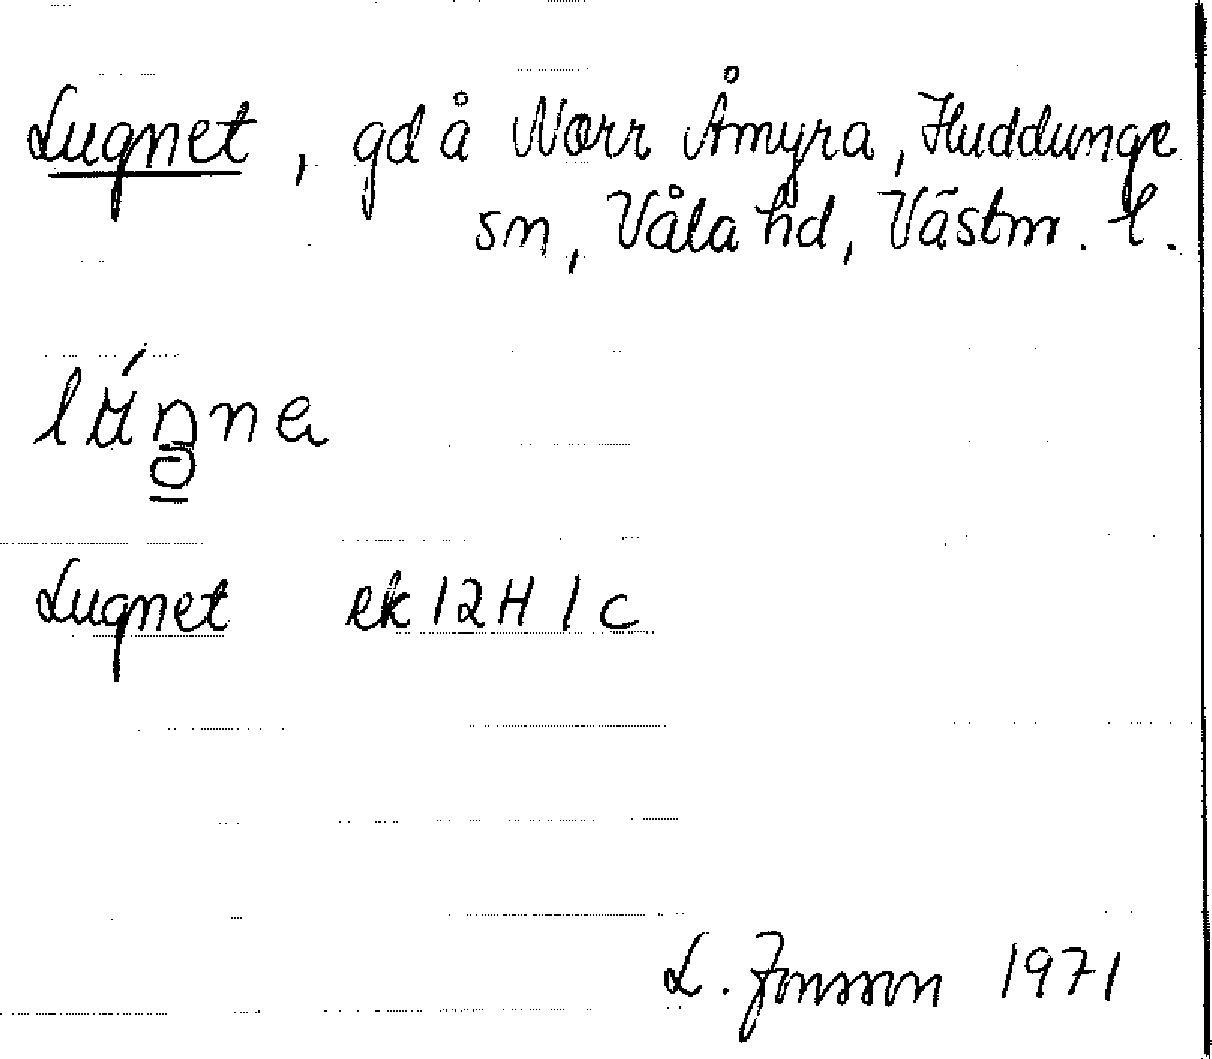 Lugnet, gd å Norr Åmyra, Huddunge
sn, Våla hd, Västm. l.
Lugnet ek 12H 1c
L. Jonsson 1971